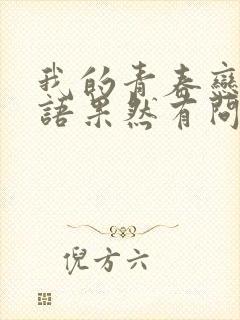 我的青春戀
語果然有問
倪方六